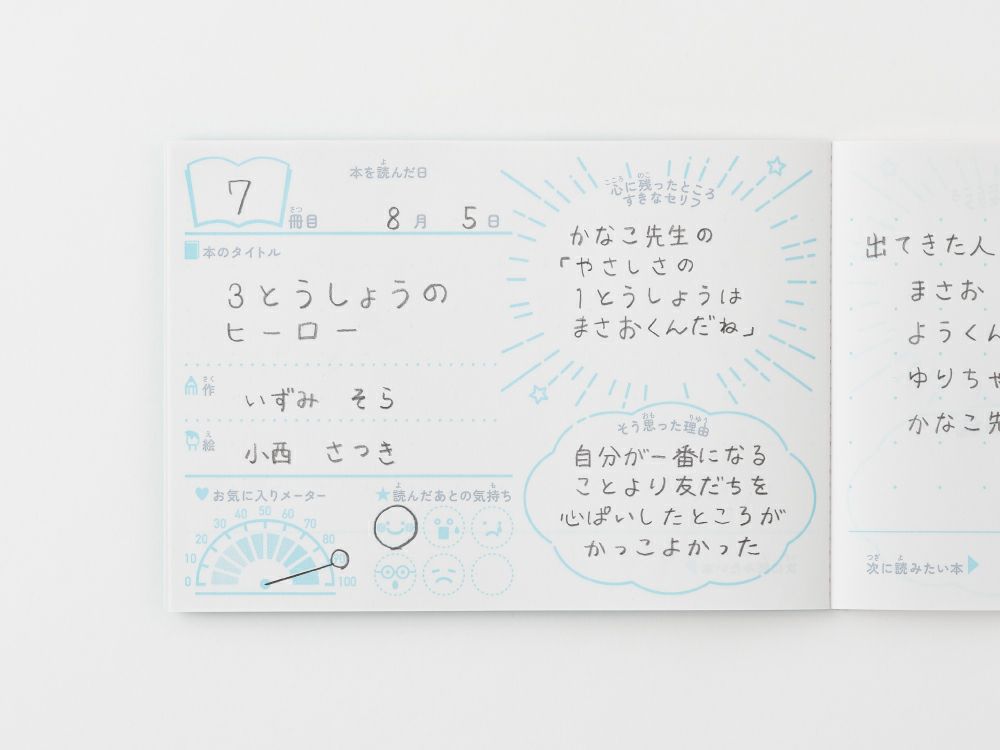 7
さつ
冊目
よ
本を読んだ日
8月 5日
本のタイトル
3とうしょうの
ヒーロー
さく
作
いずみ そら
え
絵
小西 さつき
お気に入りメーター
0 10 20 30 40 50 60 70 80 90 100
よ も
★読んだあとの気持ち
こころ のこ
心に残ったところ
すきなセリフ
かなこ先生の
「やさしさの
1とうしょうは
まさおくんだね」
おも りゆう
そう思った理由
自分が一番になる
ことより友だちを
心ぱいしたところが
かっこよかった
出てきた人
まさお
ようくん
ゆりちゃ
かなこ先
つぎ よ
次に読みたい本